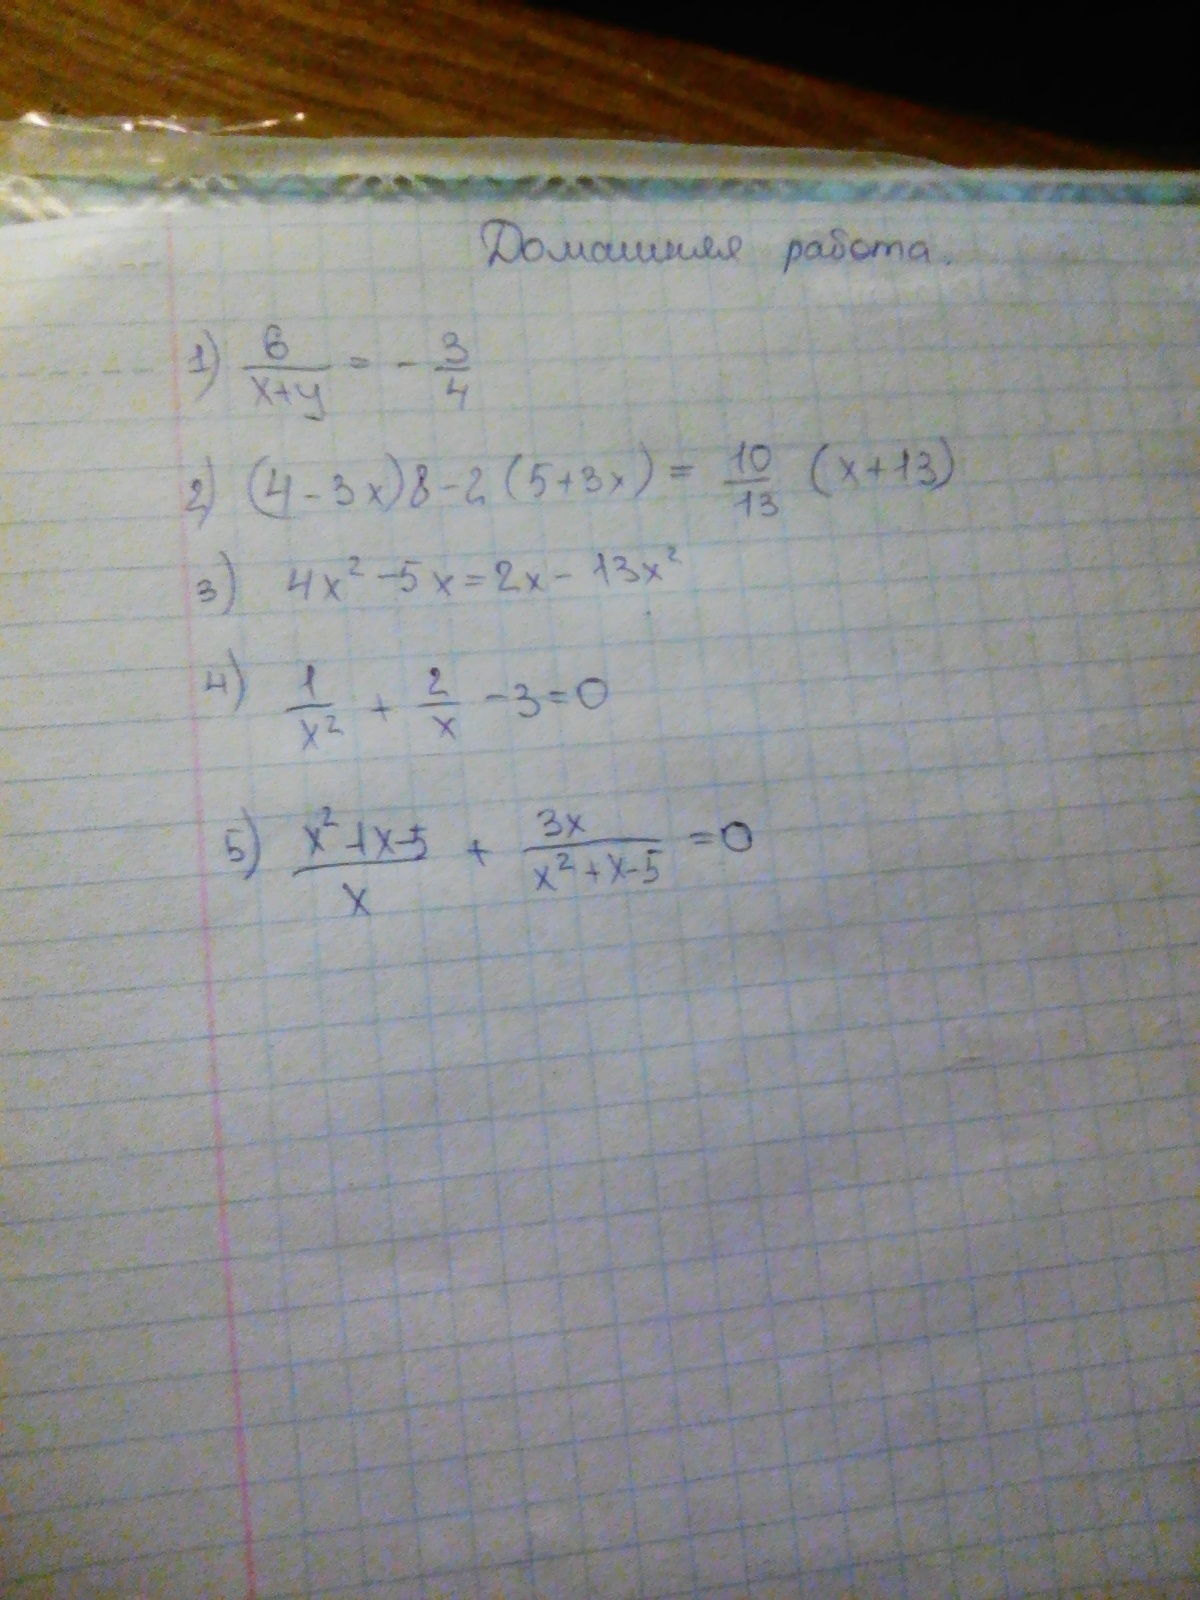 Домашняя работа.
1) 6/(x+y) = - 3/4
2) (4-3x)8-2(5+3x) = 10/13 (x+13)
3) 4x²-5x=2x-13x²
4) 1/x² + 2/x -3=0
5) (x²-1x-5)/x + 3x/(x²+x-5) =0